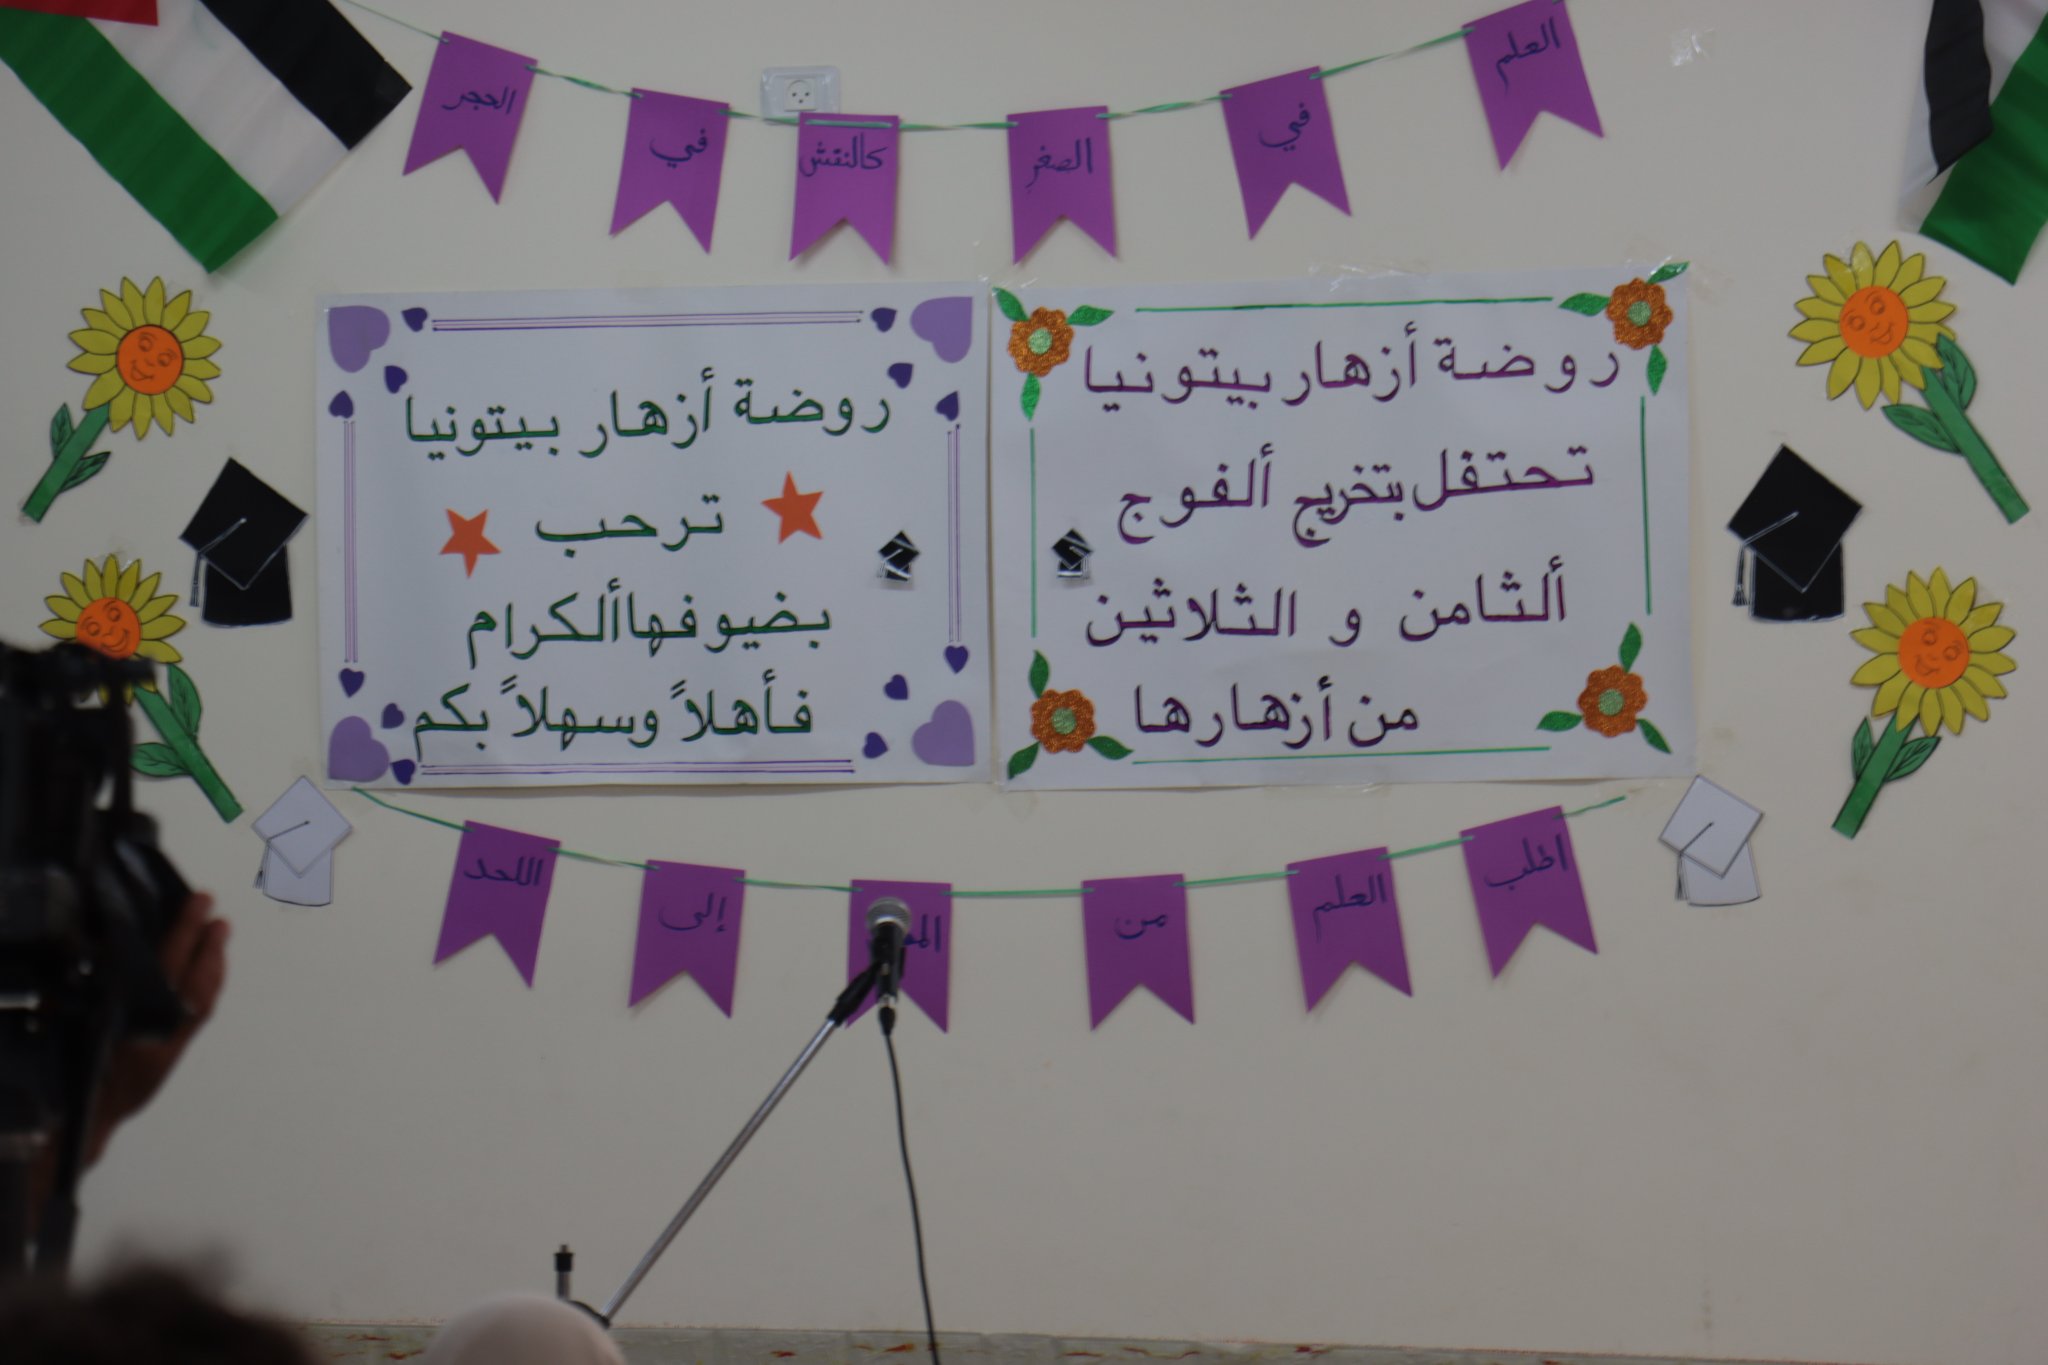 العلم في الصغر كالنقش في الحجر
روضة أزهار بيتونيا
تحتفل بتخريج ألفوج
ألثامن و الثلاثين
من أزهارها
روضة أزهار بيتونيا
ترحب
بضيوفها ألكرام
فأهلاً وسهلاً بكم
اطلب العلم من إلى اللحد